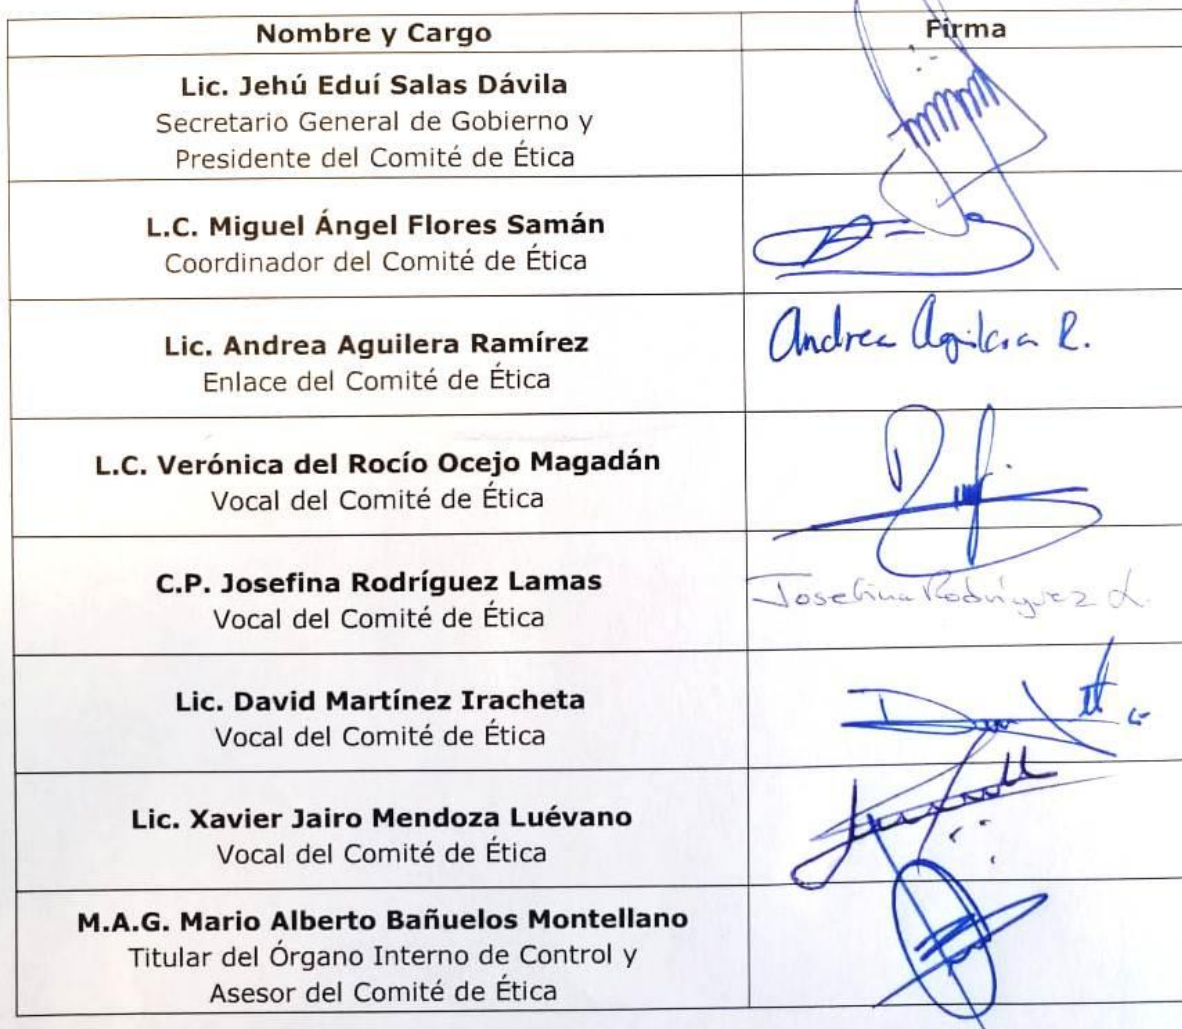 Nombre y Cargo
Firma
Lic. Jehú Eduí Salas Dávila
Secretario General de Gobierno y
Presidente del Comité de Ética
L.C. Miguel Ángel Flores Samán
Coordinador del Comité de Ética
Lic. Andrea Aguilera Ramírez
Enlace del Comité de Ética
Andrea Aguilera R.
L.C. Verónica del Rocío Ocejo Magadán
Vocal del Comité de Ética
C.P. Josefina Rodríguez Lamas
Vocal del Comité de Ética
Josefina Rodríguez L.
Lic. David Martínez Iracheta
Vocal del Comité de Ética
Lic. Xavier Jairo Mendoza Luévano
Vocal del Comité de Ética
M.A.G. Mario Alberto Bañuelos Montellano
Titular del Órgano Interno de Control y
Asesor del Comité de Ética